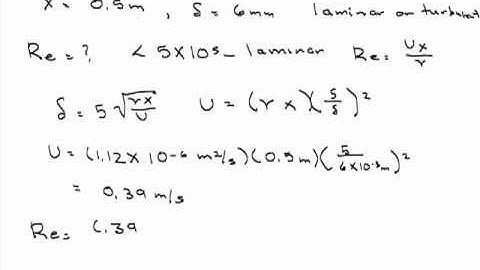 x = 0.5m , δ = 6mm laminar or turbulent
Re = ? < 5×10⁵ – laminar Re = Ux/r
δ = 5 √(rx/U) U = (r x)(5/δ)²
U = (1.12 × 10-6 m²/s)(0.5m)(5/6×10-3m)²
= 0.39 m/s
Re = (.39